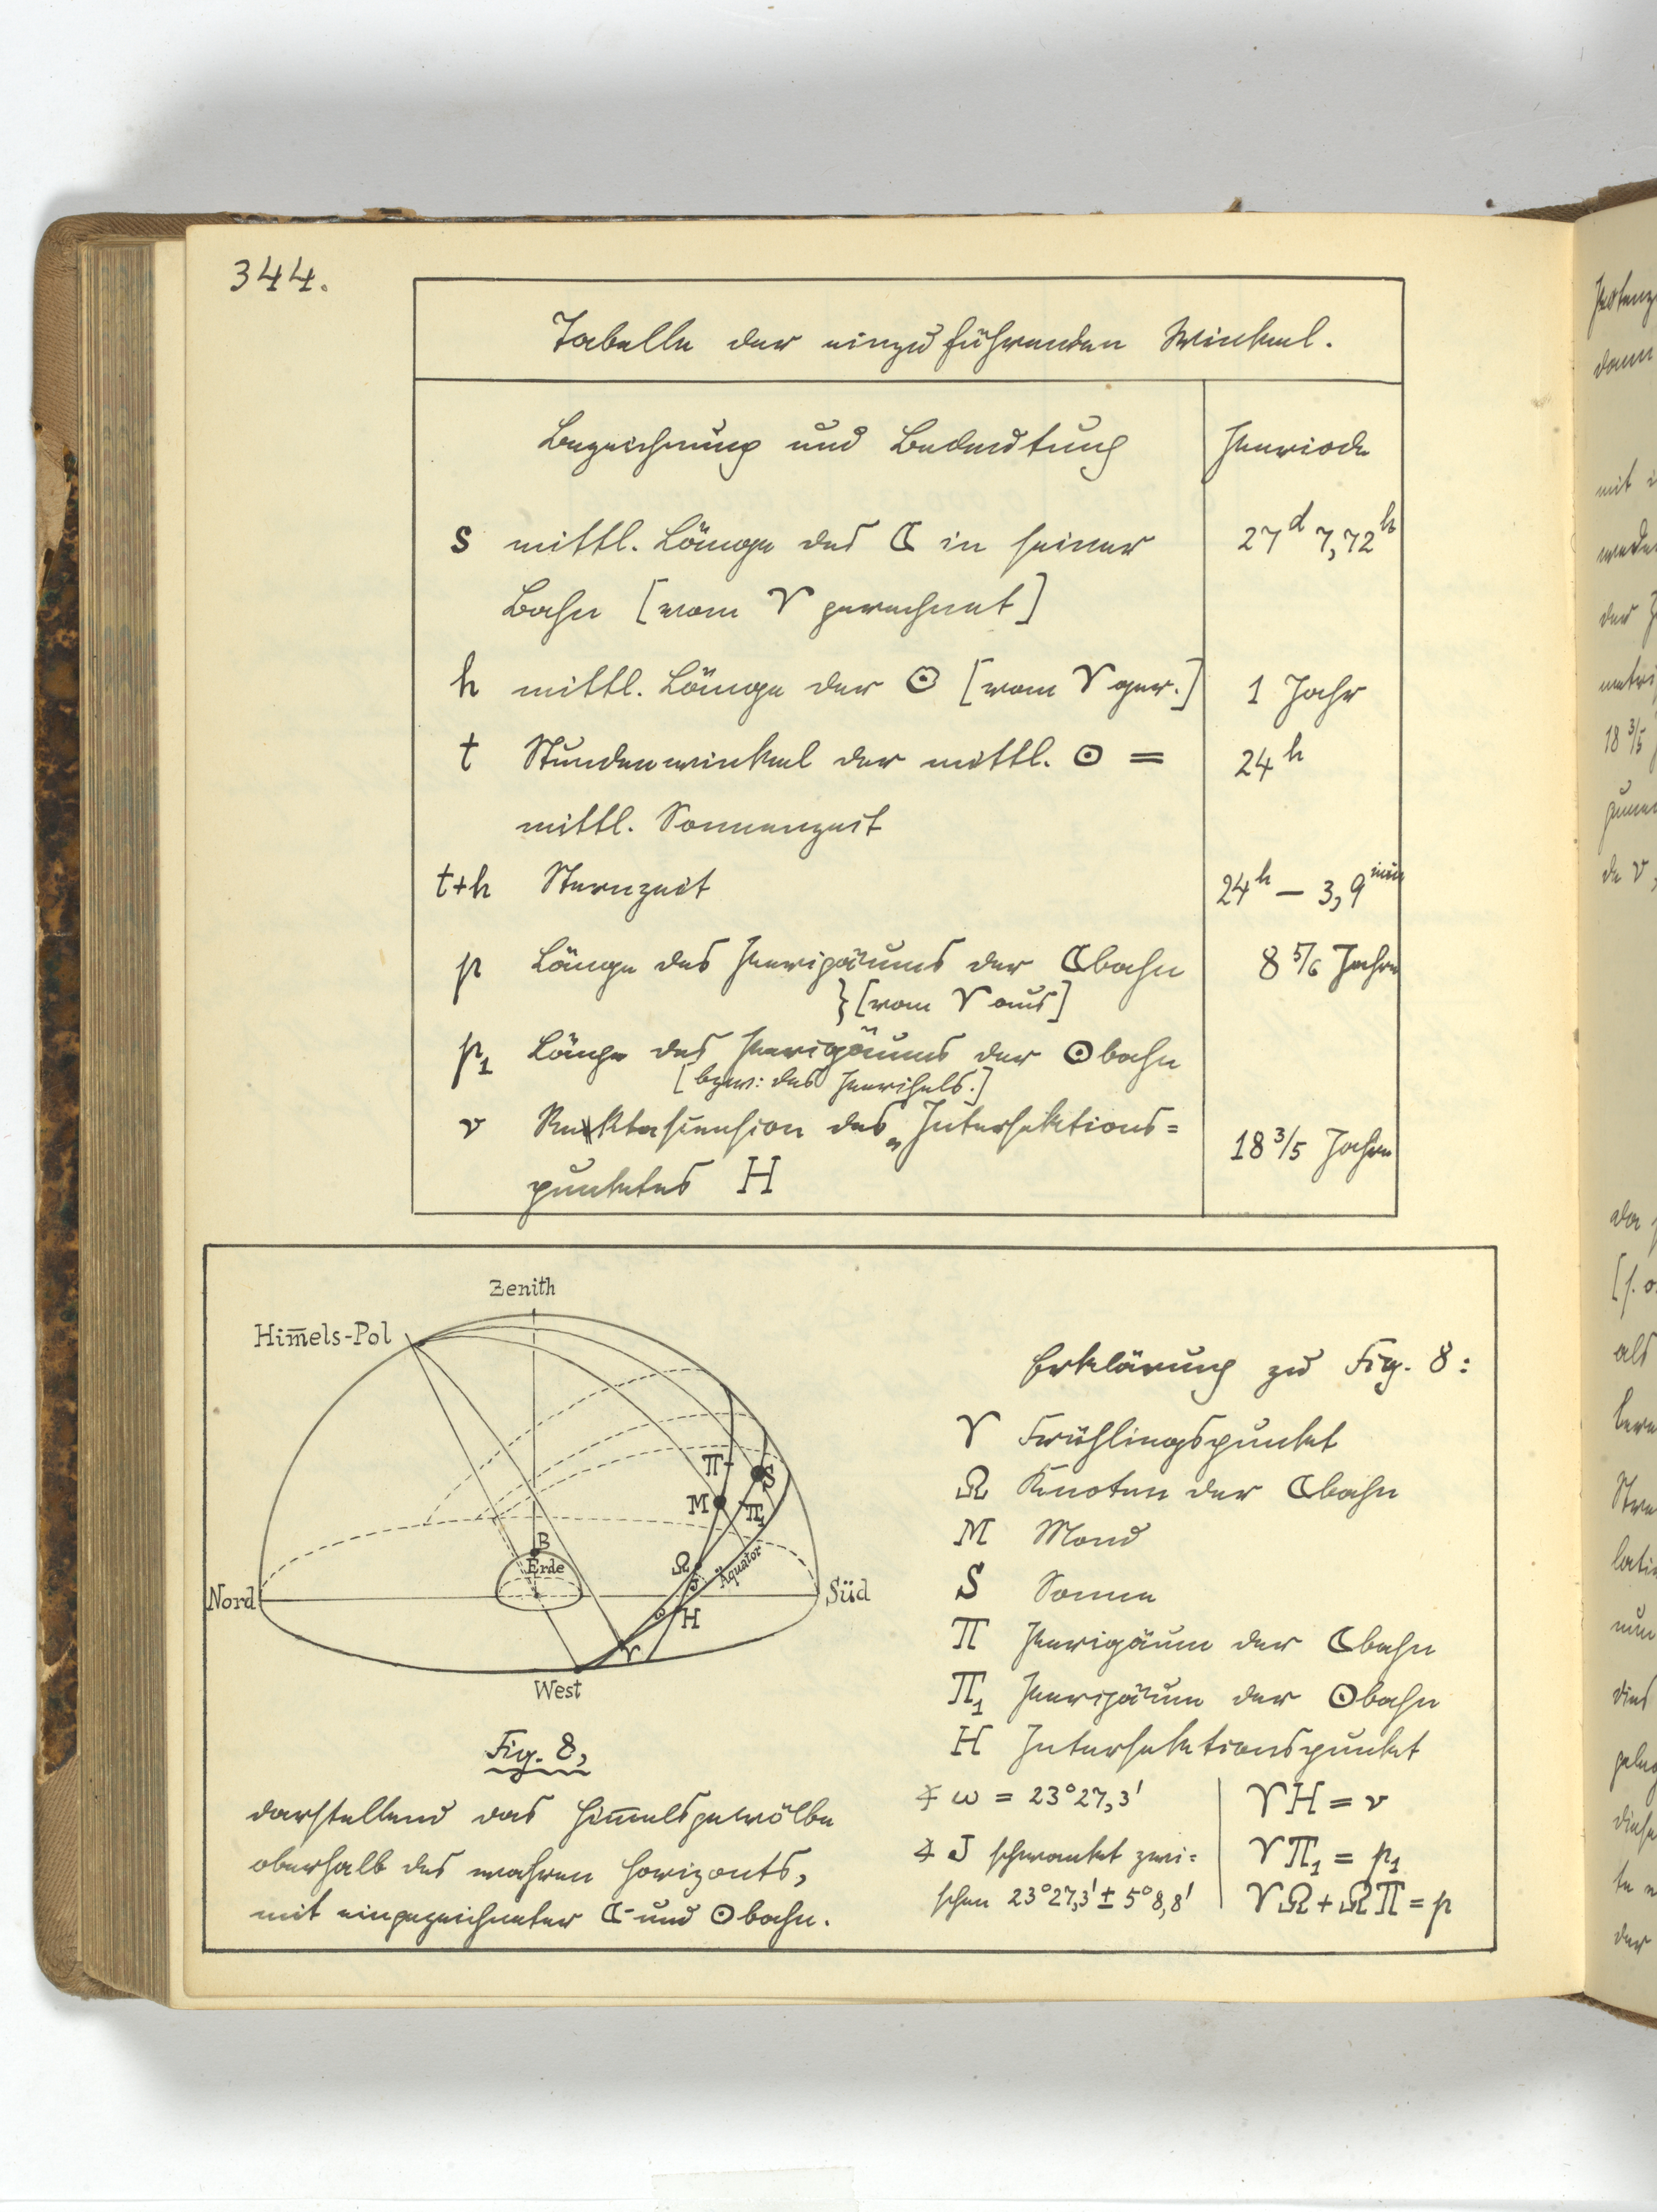 344.
Tabelle der einzuführenden Winkel.
Bezeichnung und Bedeutung Periode
s mittl. Länge des ☾ in seiner 27ᵈ 7,72ʰ
Bahn [vom ♈ gerechnet]
h mittl. Länge der ☉ [vom ♈ ger.] 1 Jahr
t Stundenwinkel der mittl. ☉ = 24ʰ
mittl. Sonnenzeit
t+h Sternzeit 24ʰ — 3,9ᵐⁱⁿ
p Länge des Perigäums der ☾bahn 8 5/6 Jahre
}[vom ♈ aus]
p₁ Länge des Perigäums der ☉bahn
[bezw: des Perihels.]
ν Rektascension des „Intersektions=
punktes H 18 3/5 Jahre
Zenith
Him̅els-Pol
Π
S
M
Π₁
B
Erde
Ω
Äquator
J
Nord
Süd
ω
H
♈
West
Fig. 8,
darstellend das Him̅elsgewölbe
oberhalb des wahren Horizonts,
mit eingezeichneter ☾- und ☉bahn.
Erklärung zu Fig. 8:
♈ Frühlingspunkt
Ω Knoten der ☾bahn
M Mond
S Sonne
Π Perigäum der ☾bahn
Π₁ Perigäum der ☉bahn
H Intersektionspunkt
∢ ω = 23°27,3'
∢ J schwankt zwi=
schen 23°27,3' ± 5°8,8'
♈H = ν
♈Π₁ = p₁
♈Ω + ΩΠ = p